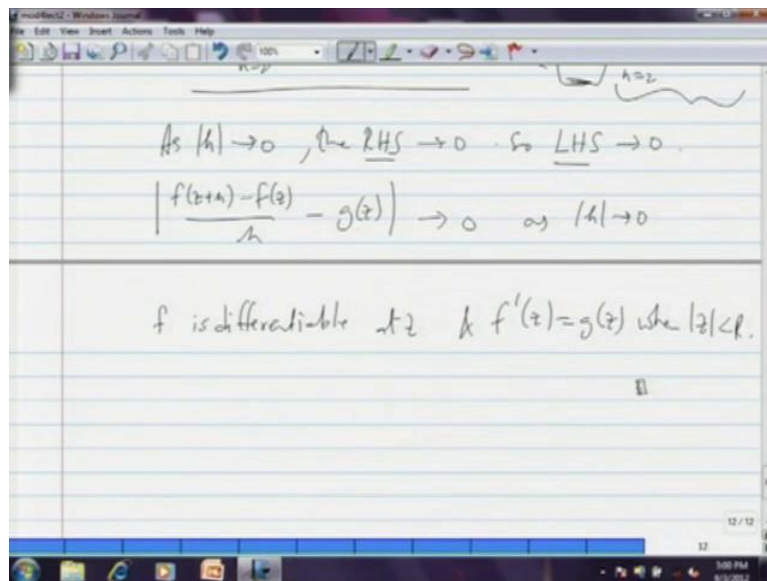 mod4lect2 - Windows Journal
File Edit View Insert Actions Tools Help
100%
n=2
As |h| → 0, the RHS → 0. So LHS → 0.
| f(z+h) - f(z) / h - g(z) | → 0 as |h| → 0
f is differentiable at z & f'(z) = g(z) when |z| < R.
12 / 12
12
5:00 PM
9/3/2012